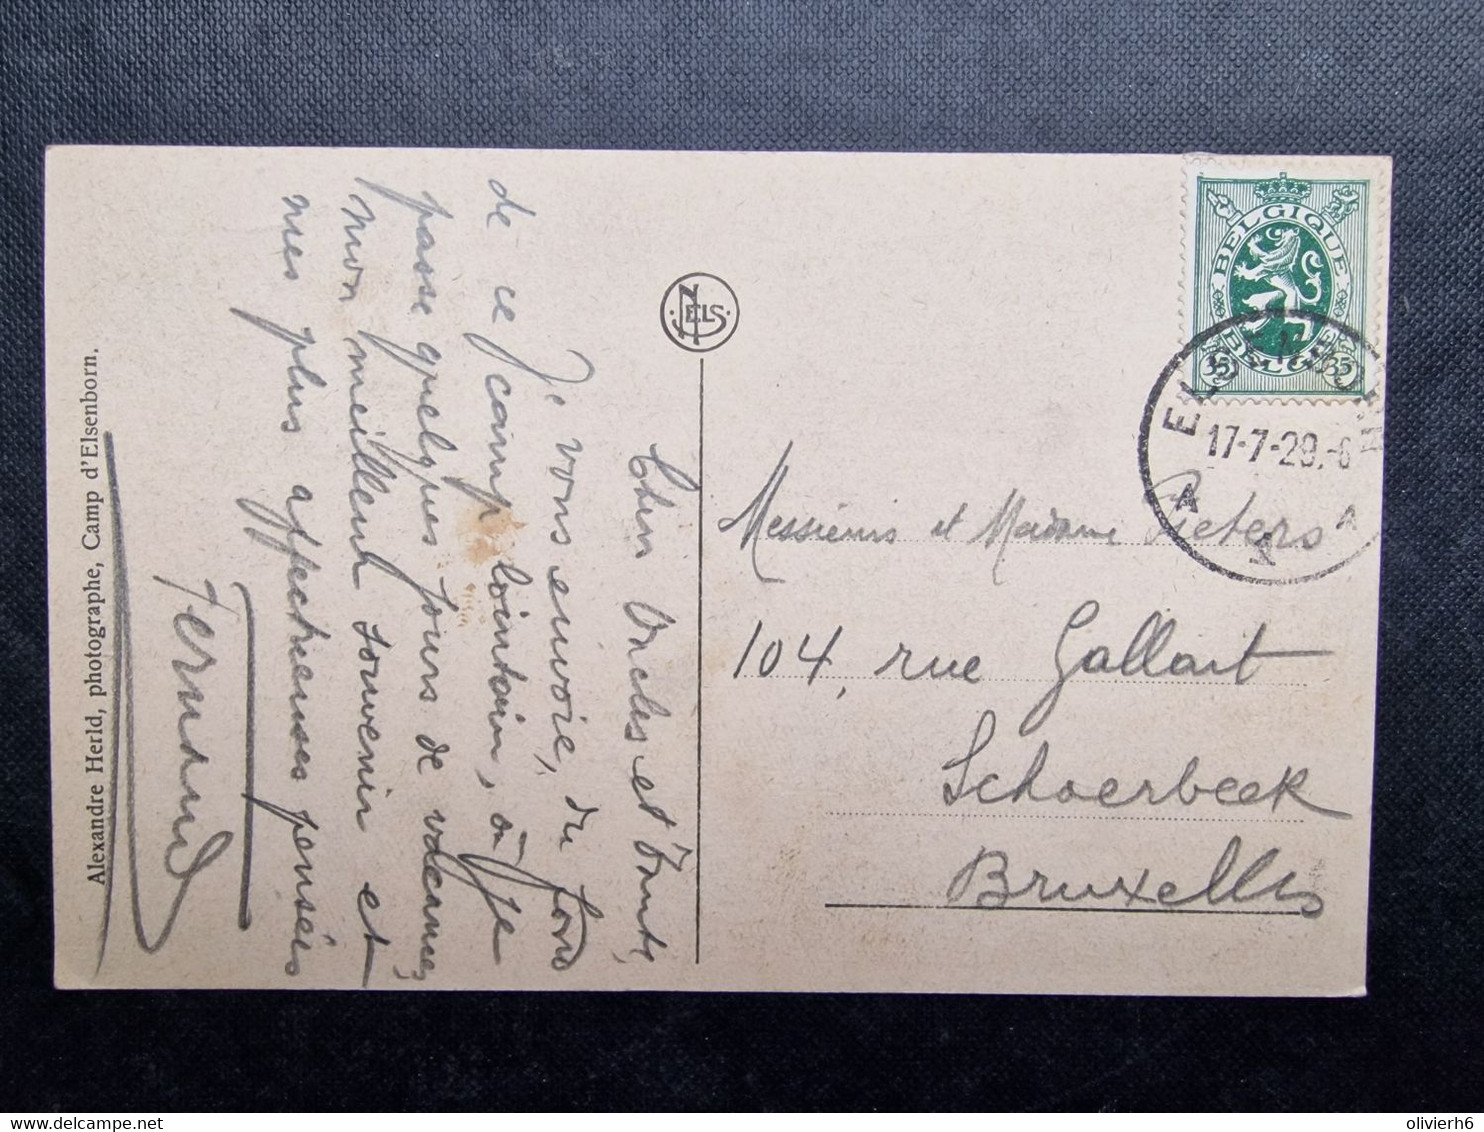 Cher Oncles et Tante,
Je vous envoie, du fond
de ce camp lointain, où je
passe quelques jours de vacances,
mon meilleur souvenir et
mes plus affectueuses pensées
Fernand
Alexandre Herld, photographe, Camp d'Elsenborn.
NELS
BELGIQUE
BELGIE
35 35
ELSENBORN
17-7-29.-6
A A
Messieurs et Madame Pieters
104, rue Gallait
Schaerbeek
Bruxelles
delcampe.net
olivierh6